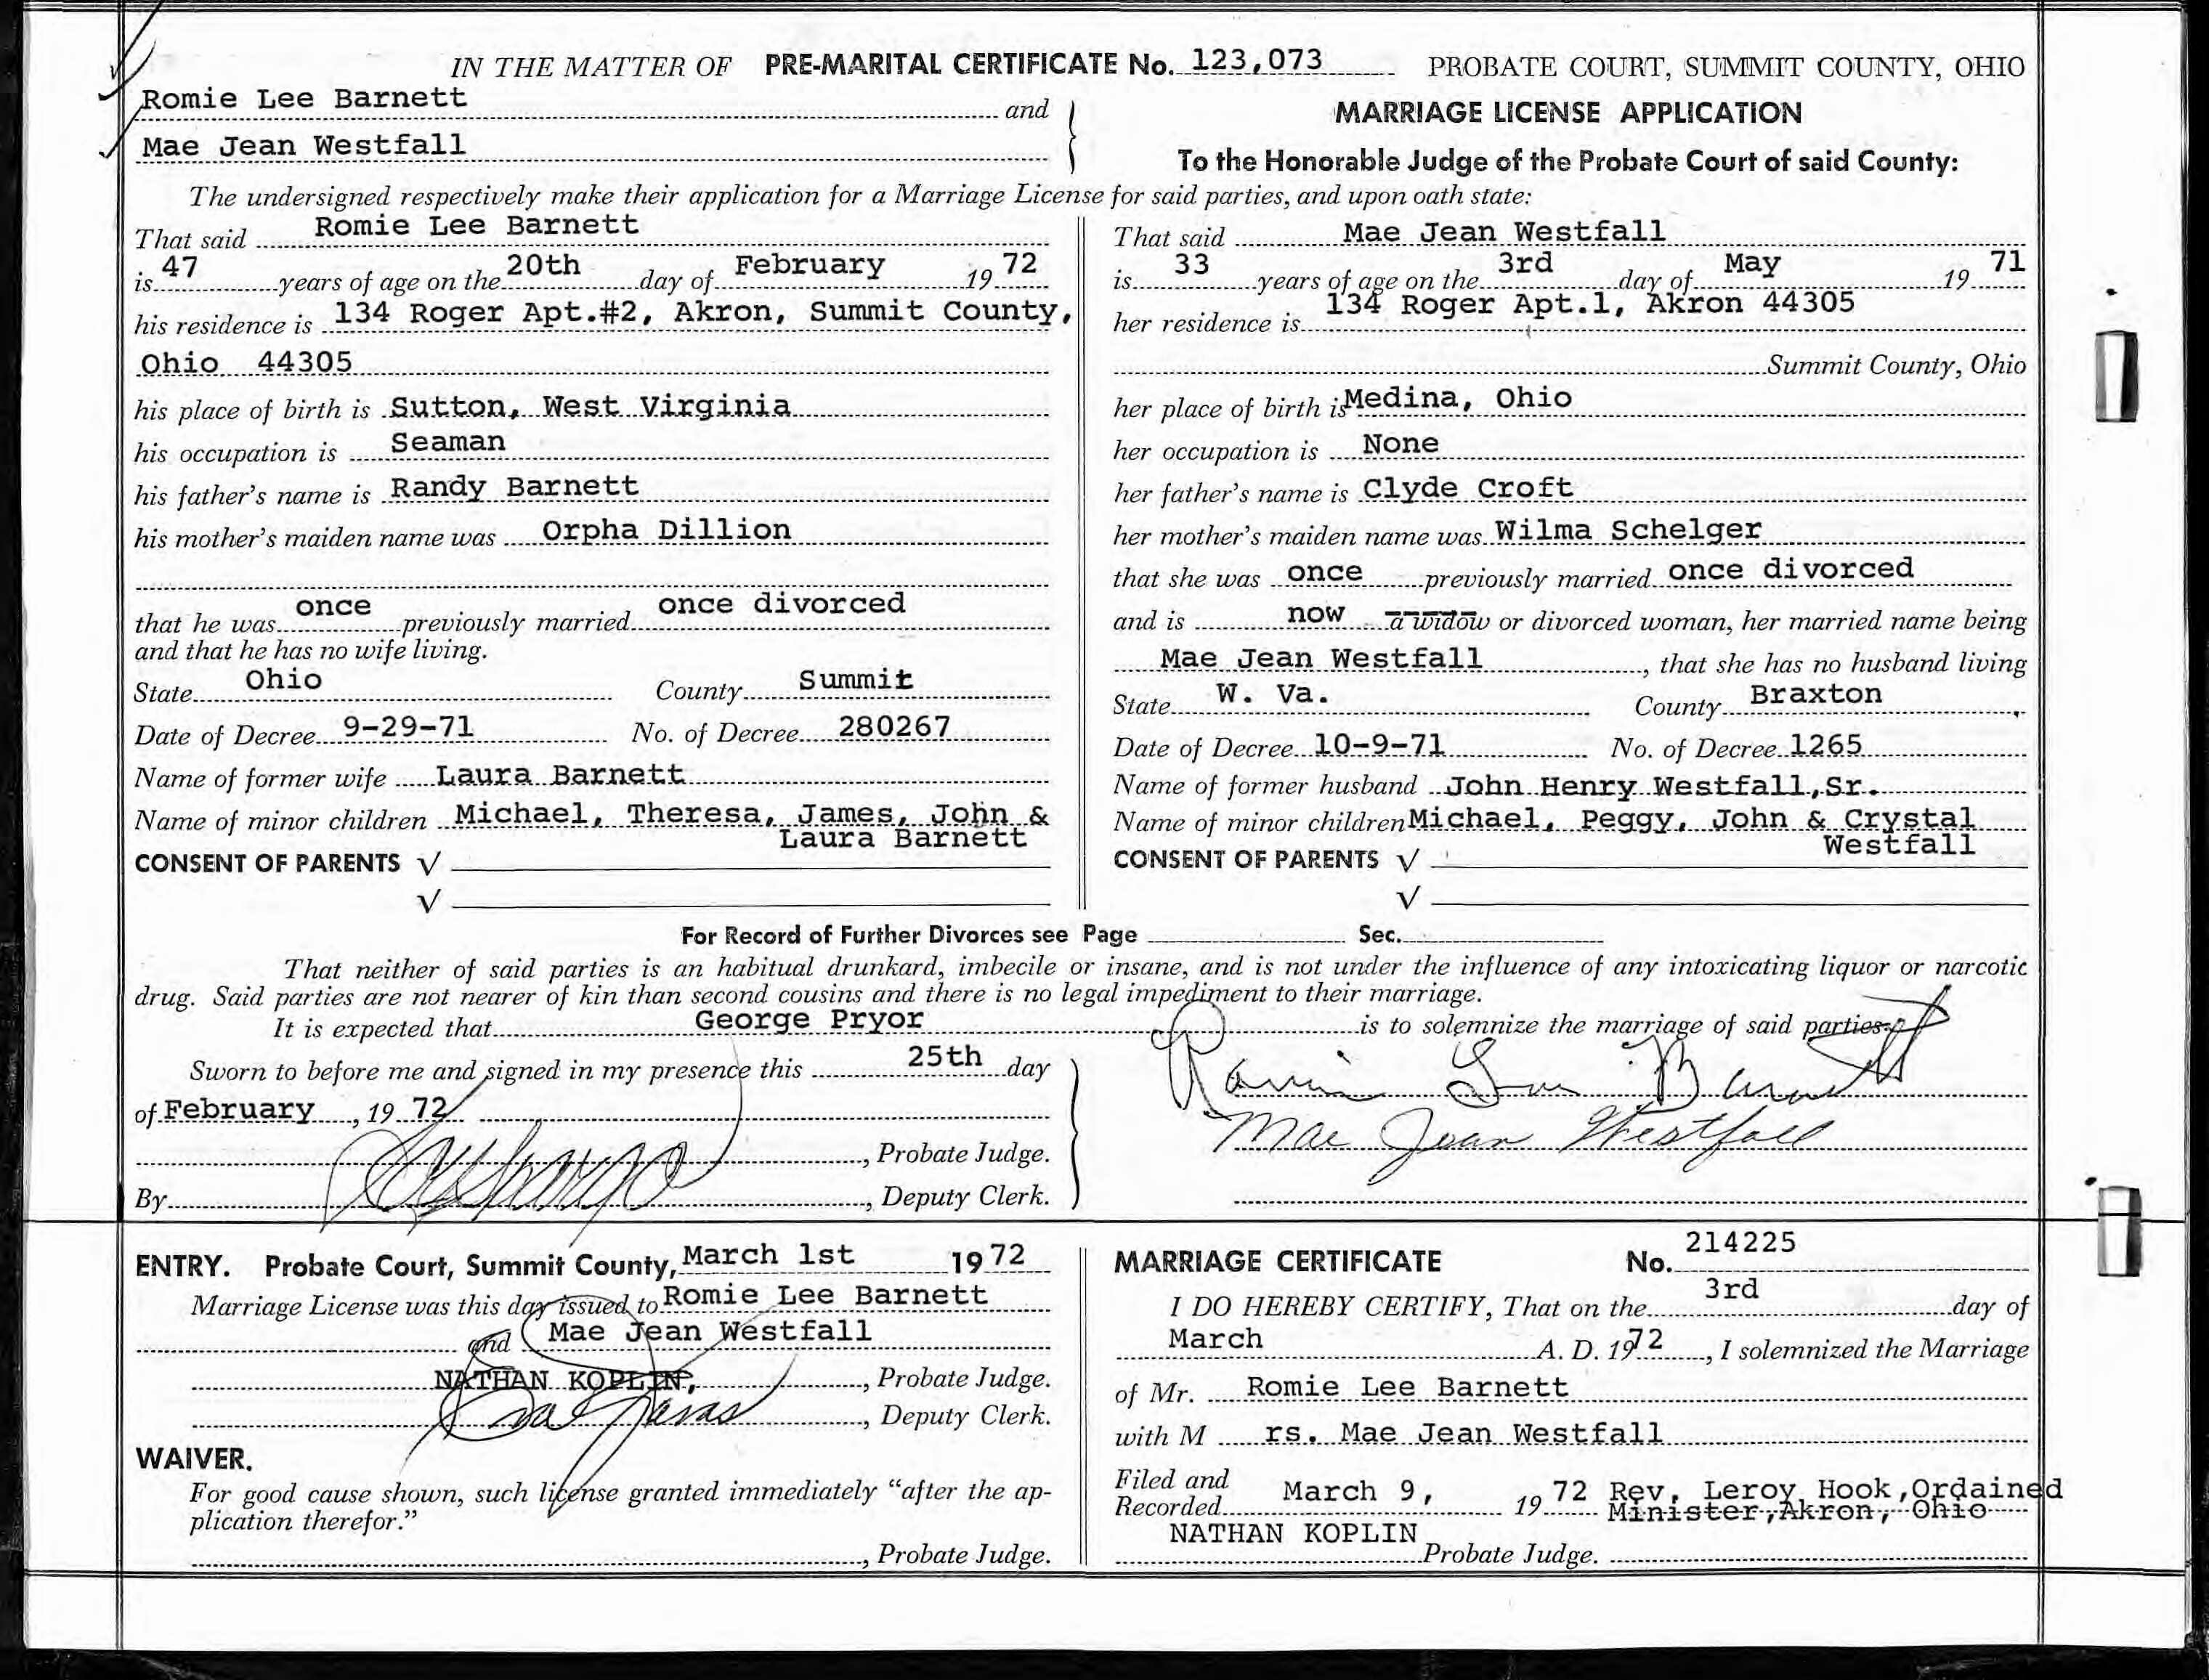 IN THE MATTER OF PRE-MARITAL CERTIFICATE No. 123,073 PROBATE COURT, SUMMIT COUNTY, OHIO
Romie Lee Barnett and
Mae Jean Westfall
MARRIAGE LICENSE APPLICATION
To the Honorable Judge of the Probate Court of said County:
The undersigned respectively make their application for a Marriage License for said parties, and upon oath state:
That said Romie Lee Barnett
is 47 years of age on the 20th day of February 1972
his residence is 134 Roger Apt.#2, Akron, Summit County,
Ohio 44305
his place of birth is Sutton, West Virginia
his occupation is Seaman
his father's name is Randy Barnett
his mother's maiden name was Orpha Dillion
that he was once previously married once divorced
and that he has no wife living.
State Ohio County Summit
Date of Decree 9-29-71 No. of Decree 280267
Name of former wife Laura Barnett
Name of minor children Michael, Theresa, James, John &
Laura Barnett
CONSENT OF PARENTS √
√
That said Mae Jean Westfall
is 33 years of age on the 3rd day of May 1971
her residence is 134 Roger Apt.1, Akron 44305
Summit County, Ohio
her place of birth is Medina, Ohio
her occupation is None
her father's name is Clyde Croft
her mother's maiden name was Wilma Schelger
that she was once previously married once divorced
and is now a widow or divorced woman, her married name being
Mae Jean Westfall, that she has no husband living
State W. Va. County Braxton
Date of Decree 10-9-71 No. of Decree 1265
Name of former husband John Henry Westfall,Sr.
Name of minor children Michael, Peggy, John & Crystal
Westfall
CONSENT OF PARENTS √
√
For Record of Further Divorces see Page Sec.
That neither of said parties is an habitual drunkard, imbecile or insane, and is not under the influence of any intoxicating liquor or narcotic
drug. Said parties are not nearer of kin than second cousins and there is no legal impediment to their marriage.
It is expected that George Pryor is to solemnize the marriage of said parties.
Sworn to before me and signed in my presence this 25th day
of February, 1972
, Probate Judge.
By , Deputy Clerk.
Romie Lee Barnett
Mae Jean Westfall
ENTRY. Probate Court, Summit County, March 1st 1972
Marriage License was this day issued to Romie Lee Barnett
and Mae Jean Westfall
NATHAN KOPLIN, , Probate Judge.
, Deputy Clerk.
WAIVER.
For good cause shown, such license granted immediately “after the ap-
plication therefor.”
, Probate Judge.
MARRIAGE CERTIFICATE No. 214225
I DO HEREBY CERTIFY, That on the 3rd day of
March A. D. 1972, I solemnized the Marriage
of Mr. Romie Lee Barnett
with Mrs. Mae Jean Westfall
Filed and
Recorded March 9, 1972 Rev. Leroy Hook,Ordained
Minister,Akron, Ohio
NATHAN KOPLIN
Probate Judge.